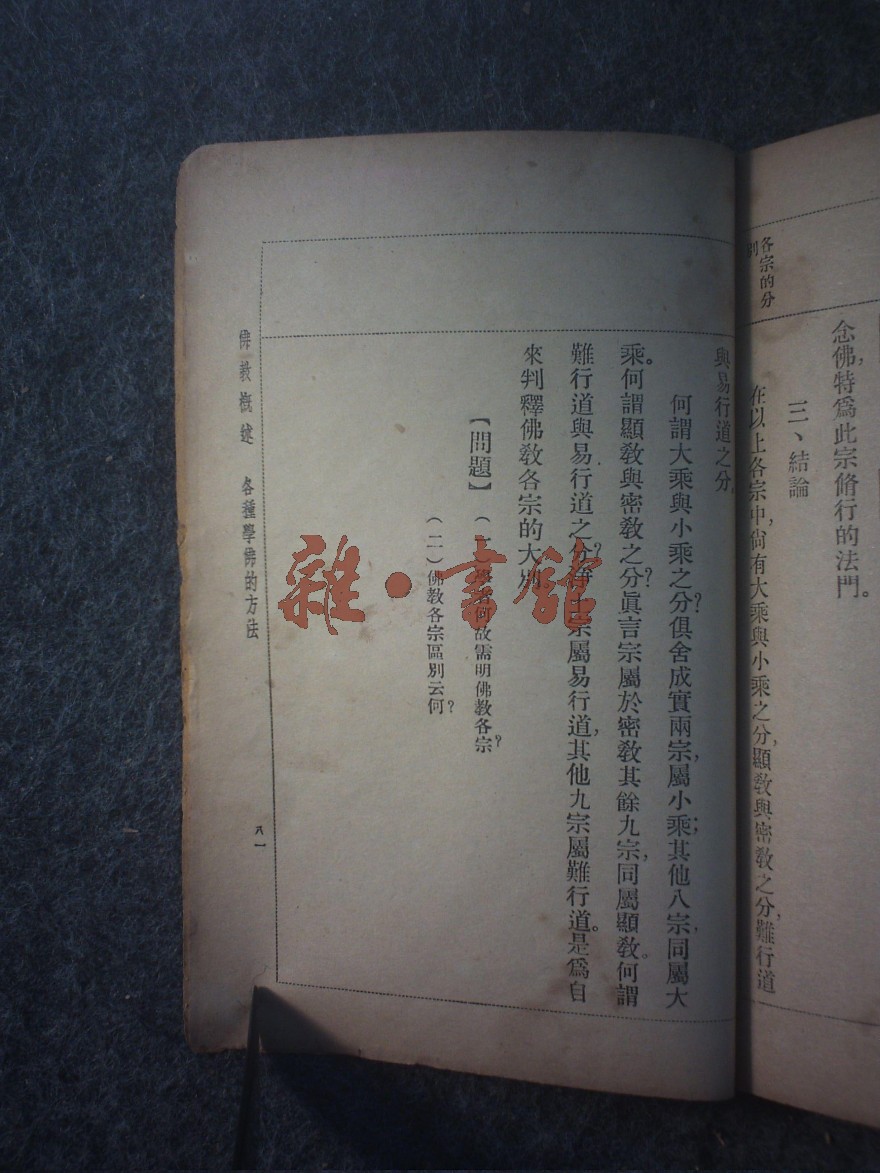 各宗的分
別
念佛，特爲此宗脩行的法門。
三、結論
在以上各宗中，尙有大乘與小乘之分，顯敎與密敎之分，難行道
與易行道之分。
何謂大乘與小乘之分？俱舍成實兩宗，屬小乘；其他八宗，同屬大
乘。何謂顯敎與密敎之分？眞言宗屬於密敎其餘九宗，同屬顯敎。何謂
難行道與易行道之分？淨土宗屬易行道，其他九宗屬難行道。是爲自
來判釋佛敎各宗的大別。
【問題】（一）學者何故需明佛敎各宗？
（二）佛敎各宗區別云何？
佛敎槪述　各種學佛的方法
八一
雜·書館